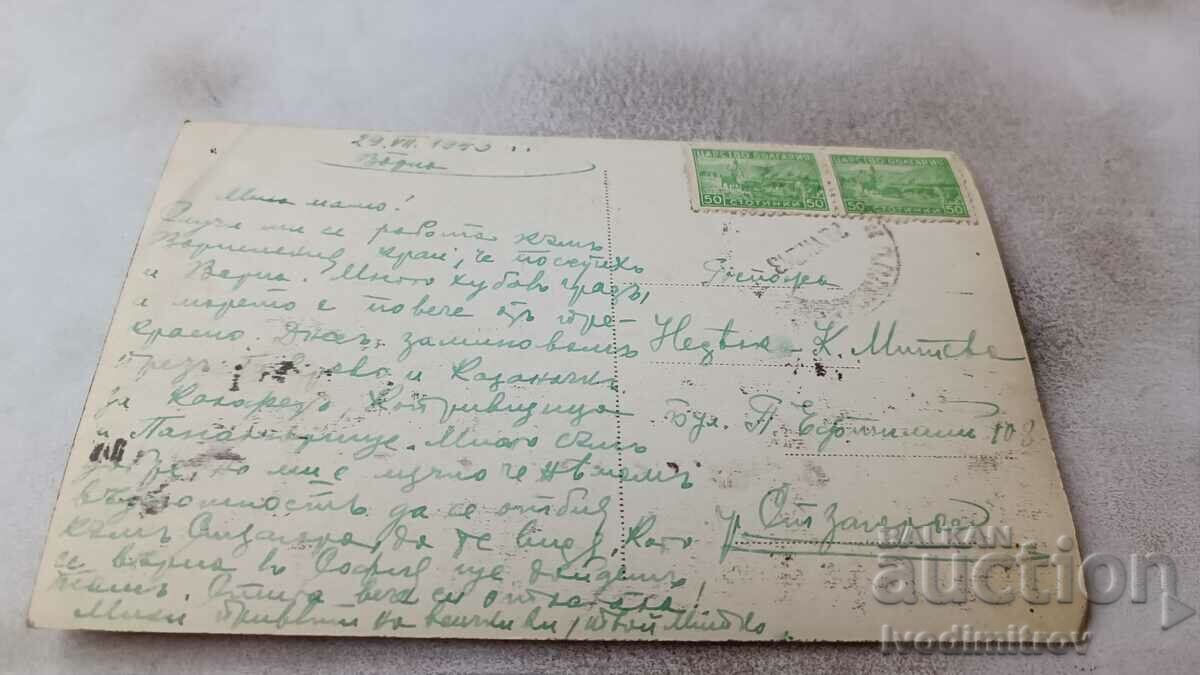 29.VII.1943
Варна
Мила мамо!
Случи ми се работа къмъ
край, че посетихъ
и Варна. Много хубавъ градъ,
а морето е повече отъ пре-
красно. Днесъ заминавамъ
презъ и Казанлъкъ
за Копривщица
и Панагюрище. Много съмъ
но ми е мъчно че нѣмамъ
възможность да се отбия
към Ст.Загора, да те видя. Като
се върна въ София ще дойдемъ
тамъ.
Много привети на всички ви, твой Митко
ЦАРСТВО БЪЛГАРИЯ
50 СТОТИНКИ 50
ЦАРСТВО БЪЛГАРИЯ
50 СТОТИНКИ 50
Госпожа
К. Митева
Бул. П. Евтимий 108
гр. Ст.Загора
BALKAN
auction
Ivodimitrov